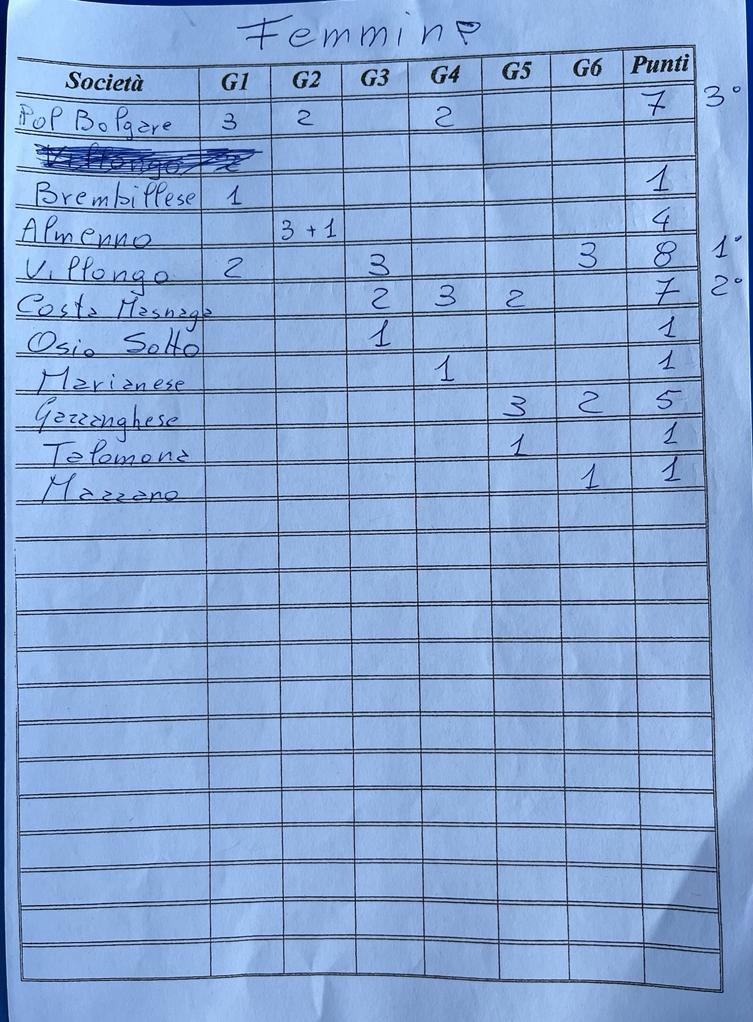 Femmine
Società G1 G2 G3 G4 G5 G6 Punti
Pol Bolgare 3 2 2 7 3°
Brembillese 1 1
Almenno 3 + 1 4
Villongo 2 3 3 8 1°
Costa Masnaga 2 3 2 7 2°
Osio Sotto 1 1
Marianese 1 1
Gazzanghese 3 2 5
Talamona 1 1
Mazzano 1 1